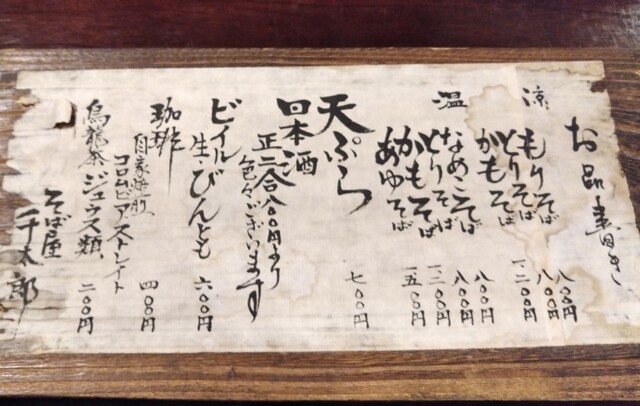 お品書き
涼 もりそば 八〇〇円
とりそば 八〇〇円
かもそば 一、二〇〇円
温 なめこそば 八〇〇円
とりそば 八〇〇円
かもそば 一、二〇〇円
あゆそば 一、五〇〇円
天ぷら 七〇〇円
日本酒
正二合八〇〇円より
色々ございます
ビイル
生・びんとも 六〇〇円
珈琲
自家焙煎、 四〇〇円
コロムビアストレイト
烏龍茶 ジュウス類、 二〇〇円
そば屋
千太郎